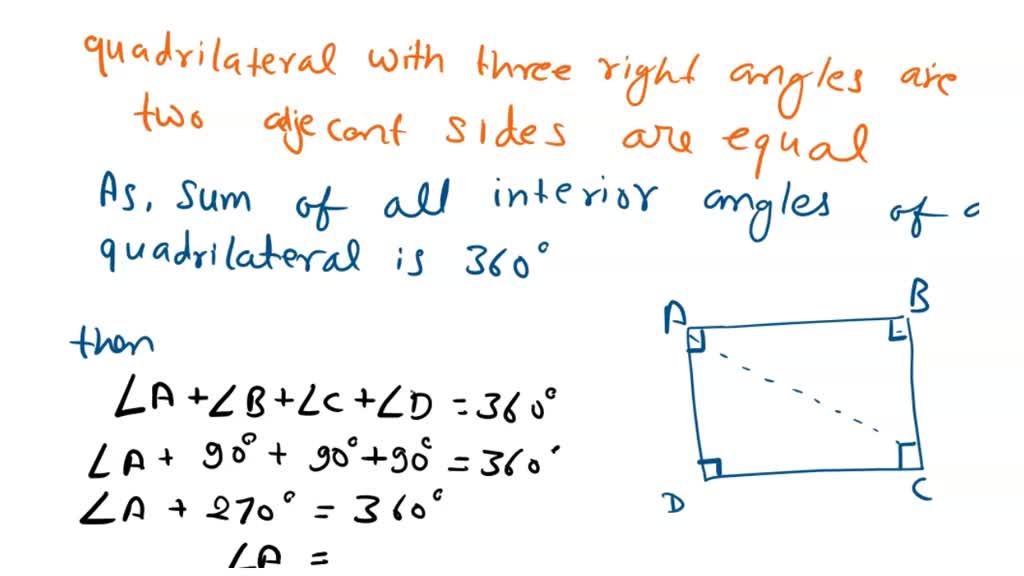 quadrilateral with three right angles are
two adjecant sides are equal
As, sum of all interior angles of
quadrilateral is 360°
then
∠A + ∠B + ∠C + ∠D = 360°
∠A + 90° + 90° + 90° = 360°
∠A + 270° = 360°
∠A =
A
B
D
C